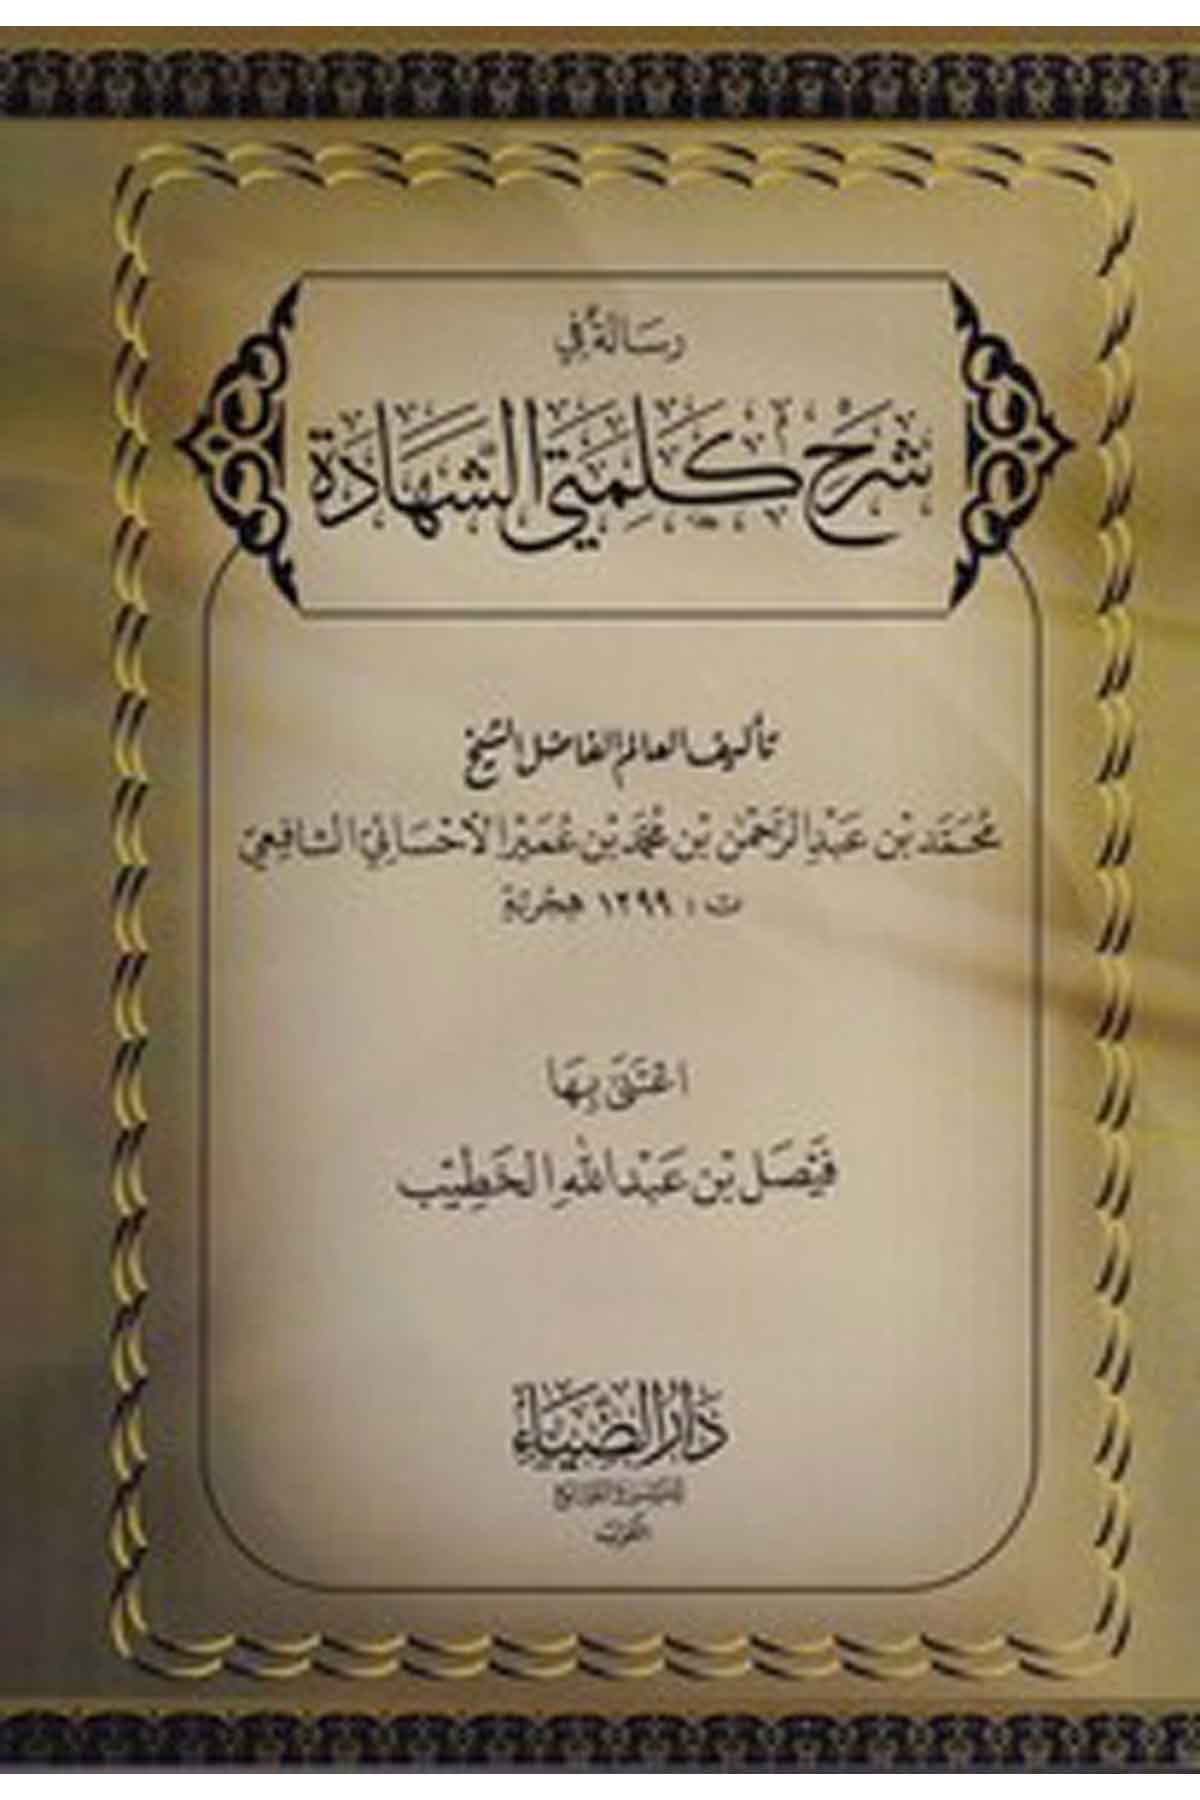 رسالة في
شَرْح كَلِمَتَي الشَّهَادَة
تأليف العالم الفاضل الشيخ
مُحَمَّد بْن عَبْدِ الرَّحْمٰنِ بْن مُحَمَّد بْن عُمَيْر الْأَحْسَائِيّ الشَّافِعِيّ
ت : ١٢٩٩ هجرية
اعْتَنَى بِهَا
فَيْصَل بْن عَبْدِ اللهِ الْخَطِيْب
دَارُ الضِّيَاء
للنشر والتوزيع
الكويت